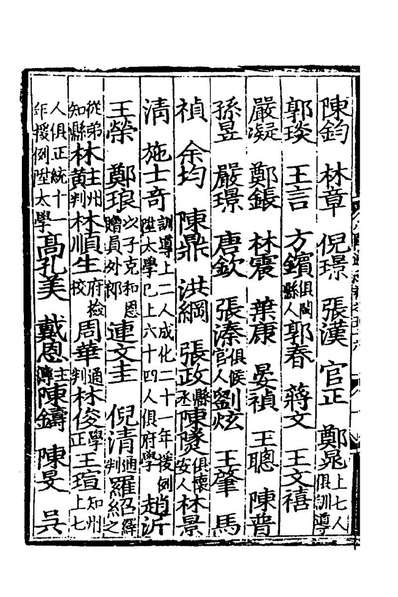 陳鈞 林章 倪璟 張漢 官正 鄭晁上七人俱訓導
郭琰 王言 方鑌俱閩縣人郭春 蔣文 王文禧
嚴凝 鄭鋹 林震 葉康 晏禎 王聰 陳普
孫昱 嚴璟 唐欽 張溱俱侯官人劉炫 王肇 馬
禎 余均 陳鼎 洪綱 張政縣丞陳㷮俱懷安人林景
清 施士奇訓導上二人成化二十一年援例陞太學已上六十四人俱府學 趙沂
王榮 鄭琅以子克和恩贈員外郎 連文圭 倪清通判羅紹繹之
從弟知縣林黃主州判林順生府檢校 周華通判林俊學正王瑄知州上七
人俱正統十一年援例陞太學高孔美 戴恩主簿陳鑄 陳旻 吳